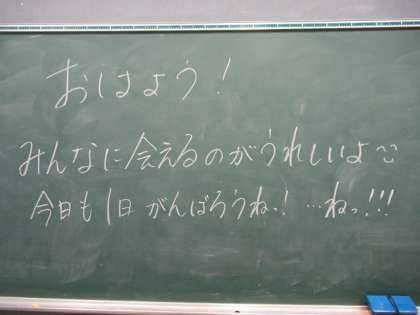 おはよう！
みんなに会えるのがうれしいよ
今日も1日 がんばろうねっ! …ねっ!!!